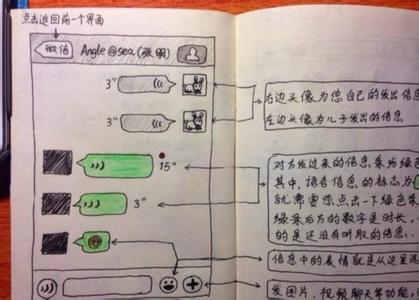 点击返回前一个界面
微信
Angle@sea(张明)
3"
3"
15"
3"
右边头像为您自己的发出信息
左边头像为儿子发出的信息
对方发过来的信息条为绿色
其中,语音信息的标志为
就需要您点击一下绿色条
绿条后方的数字是时长,
的是还没有听取的信息;
信息中的表情就是从这里选
发图片,视频聊天等功能,